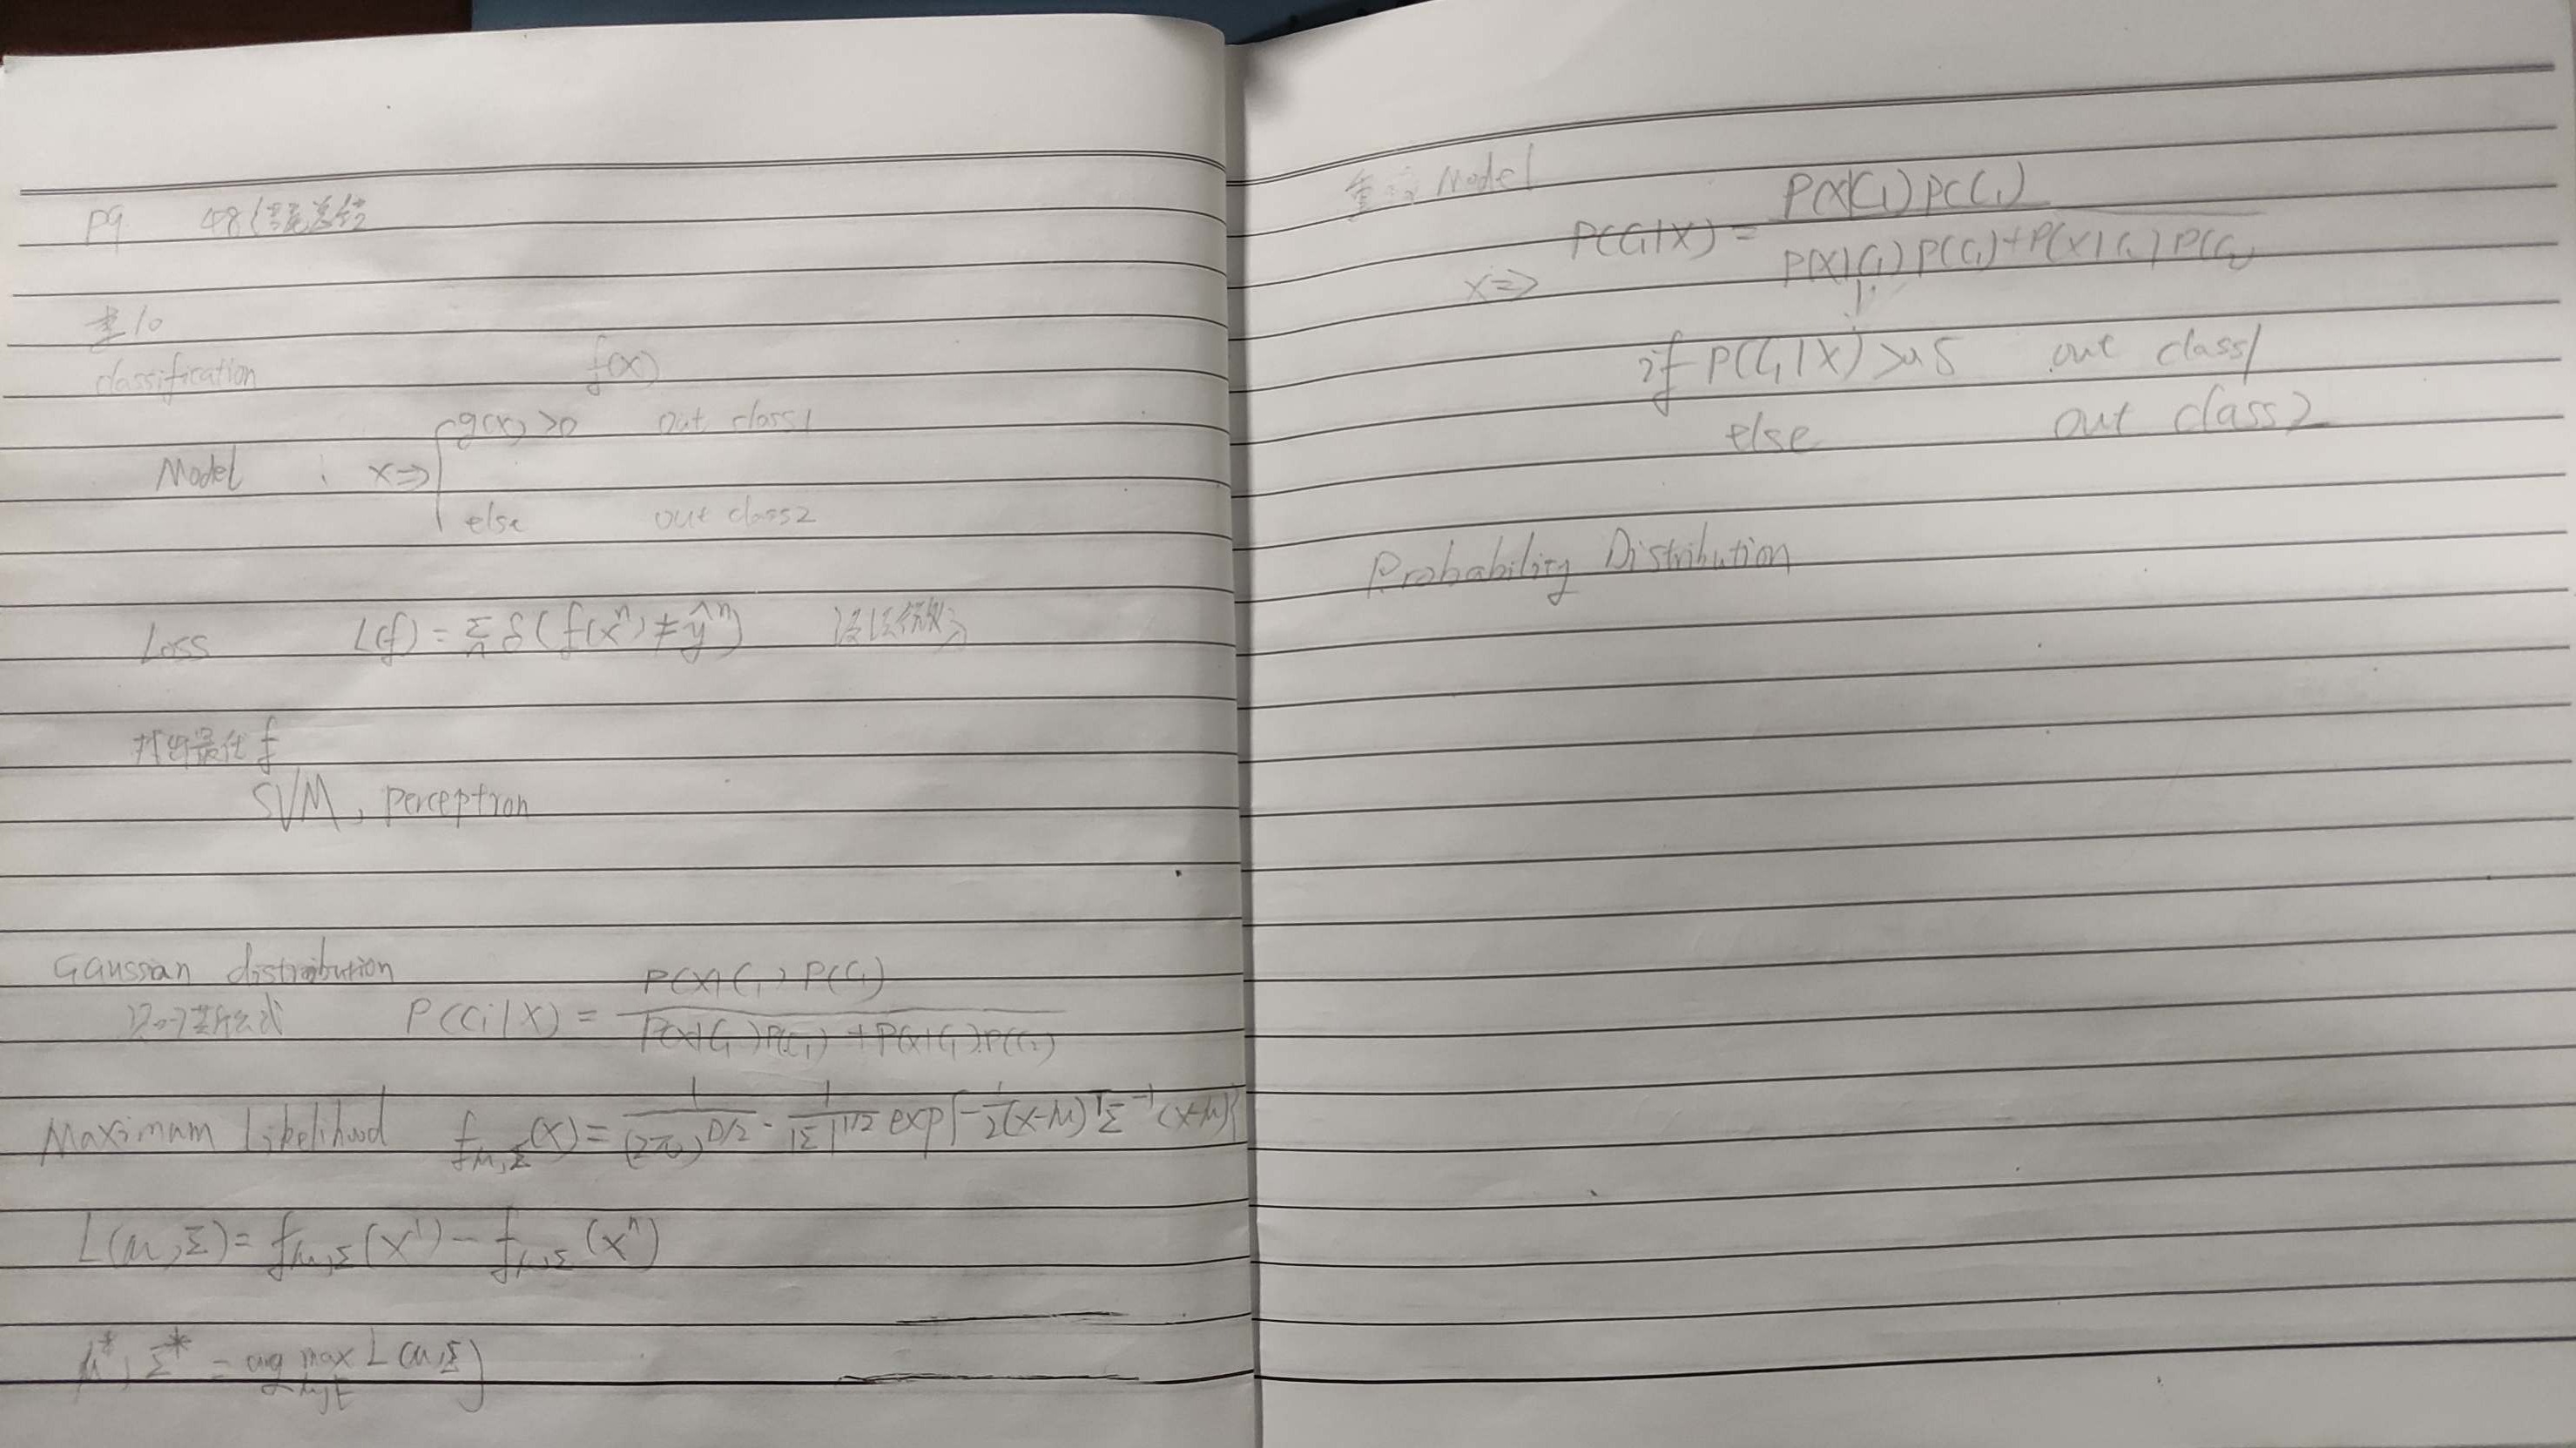 P9 48
classification
f(x)
g(x) >0 out class1
Model : x⇒
else out class2
Loss L(f) = Σₙ δ( f(xⁿ) ≠ ŷⁿ) 没法微分
找出最佳 f
SVM, perceptron
Gaussian distribution
P(Ci|X) = P(X|C₁) P(C₁) / P(X|C₁)P(C₁) + P(X|C₁).P(C₂)
Maximum Likelihood f_μ,Σ(X) = 1/(2π)^D/2 · 1/|Σ|^1/2 exp{-1/2(x-μ)ᵀΣ⁻¹(x-μ)}
L(μ,Σ)= f_μ,Σ(x¹) - f_μ,Σ(xⁿ)
μ*, Σ* = arg max_μ,Σ L(μ,Σ)
Model
P(C₁|X) = P(X|C₁) P(C₁) / P(X|C₁) P(C₁)+P(X|C₂) P(C₂)
x⇒
if P(C₁|X) >0.5 out class1
else out class2
Probability Distribution